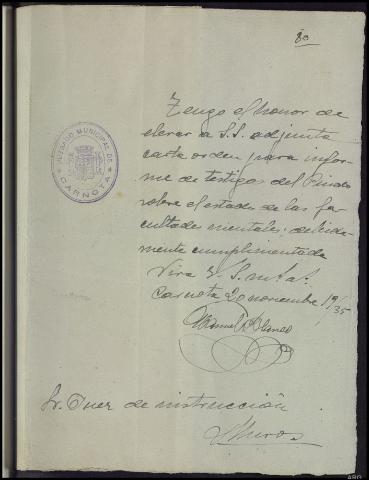 80
JUZGADO MUNICIPAL DE
CARNOTA
Tengo el honor de
elevar a S.S. adjunta
carta orden para infor-
me de testigos del Pindo
sobre el estado de las fa-
cultades mentales, debida-
mente cumplimentada
Viva V. S. m. a.
Carnota 20 noviembre 19/35
Manuel
Sr. Juez de instrucción
Muros